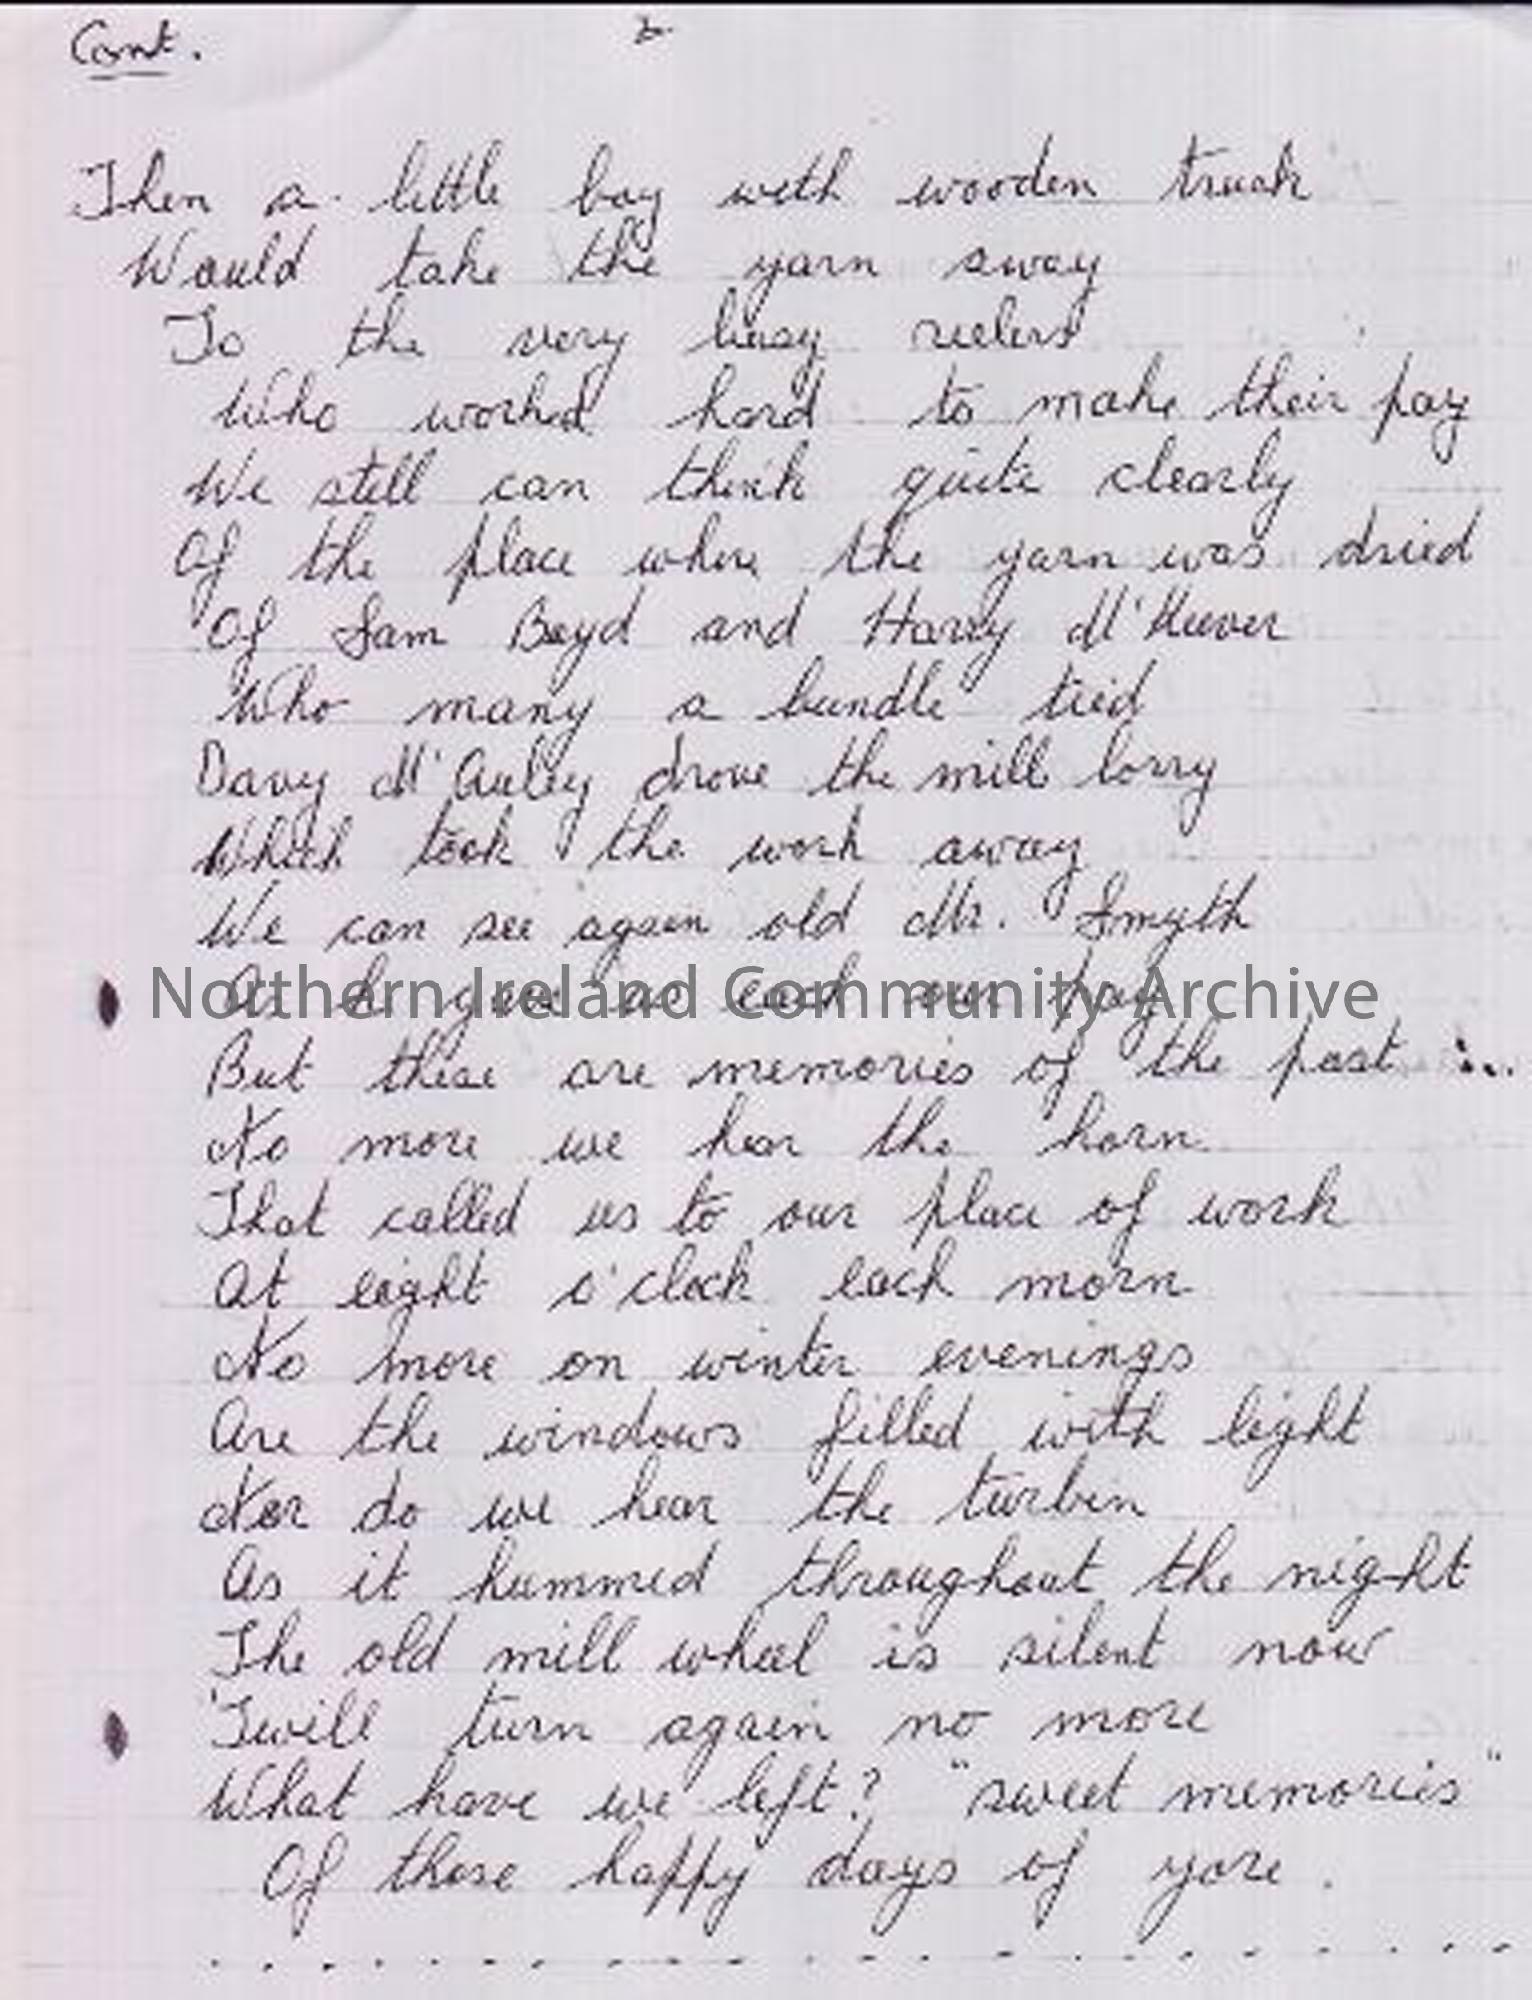 Cont.
Then a little boy with wooden truck
Would take the yarn away
To the very busy reelers
Who worked hard to make their pay
We still can think quite clearly
Of the place where the yarn was dried
Of Sam Boyd and Harry M'Keever
Who many a bundle tied
Davy M'Auley drove the mill lorry
Which took the work away
We can see again old Mr. Smyth
As he gave us each our pay
Northern Ireland Community Archive
But these are memories of the past ...
No more we hear the horn
That called us to our place of work
At eight o'clock each morn
No more on winter evenings
Are the windows filled with light
Nor do we hear the turbin
As it hummed throughout the night
The old mill wheel is silent now
'Twill turn again no more
What have we left? "sweet memories"
Of those happy days of yore.
. . . . . . . . . . . . . . . . . . . .